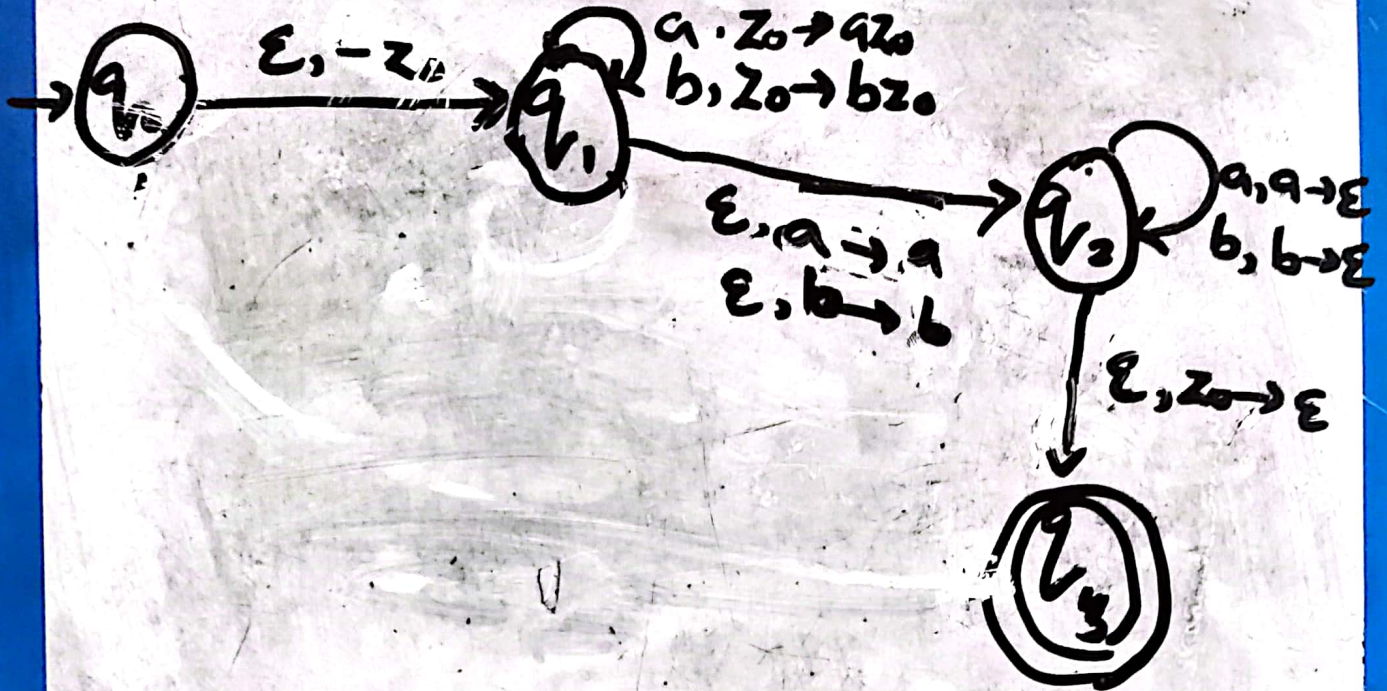 q₀
ε, -z₀
q₁
a . z₀ → az₀
b, z₀ → bz₀
ε, a → a
ε, b → b
q₂
a, a → ε
b, b → ε
ε, z₀ → ε
q₃